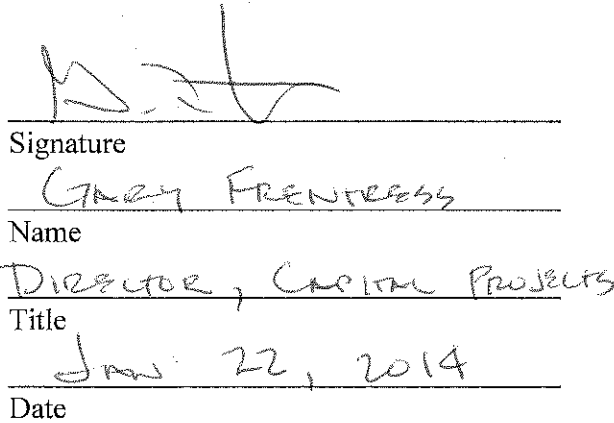 Signature
GARY FRENTRESS
Name
DIRECTOR, CAPITAL PROJECTS
Title
JAN 22, 2014
Date